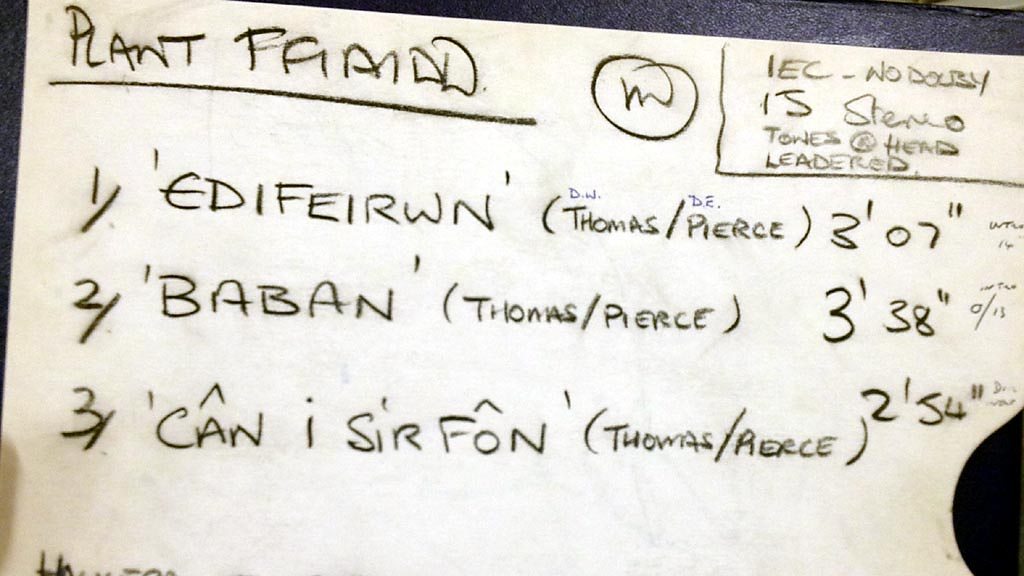 PLANT FFIAIDD
m
IEC - NO DOLBY
15 Stereo
TONES @ HEAD
LEADERED.
1/ 'EDIFEIRWN' (D.W. THOMAS/D.E. PIERCE) 3'07" INTRO 14
2/ 'BABAN' (THOMAS/PIERCE) 3'38" INTRO 0/13
3/ 'CÂN I SIR FÔN' (THOMAS/PIERCE) 2'54"